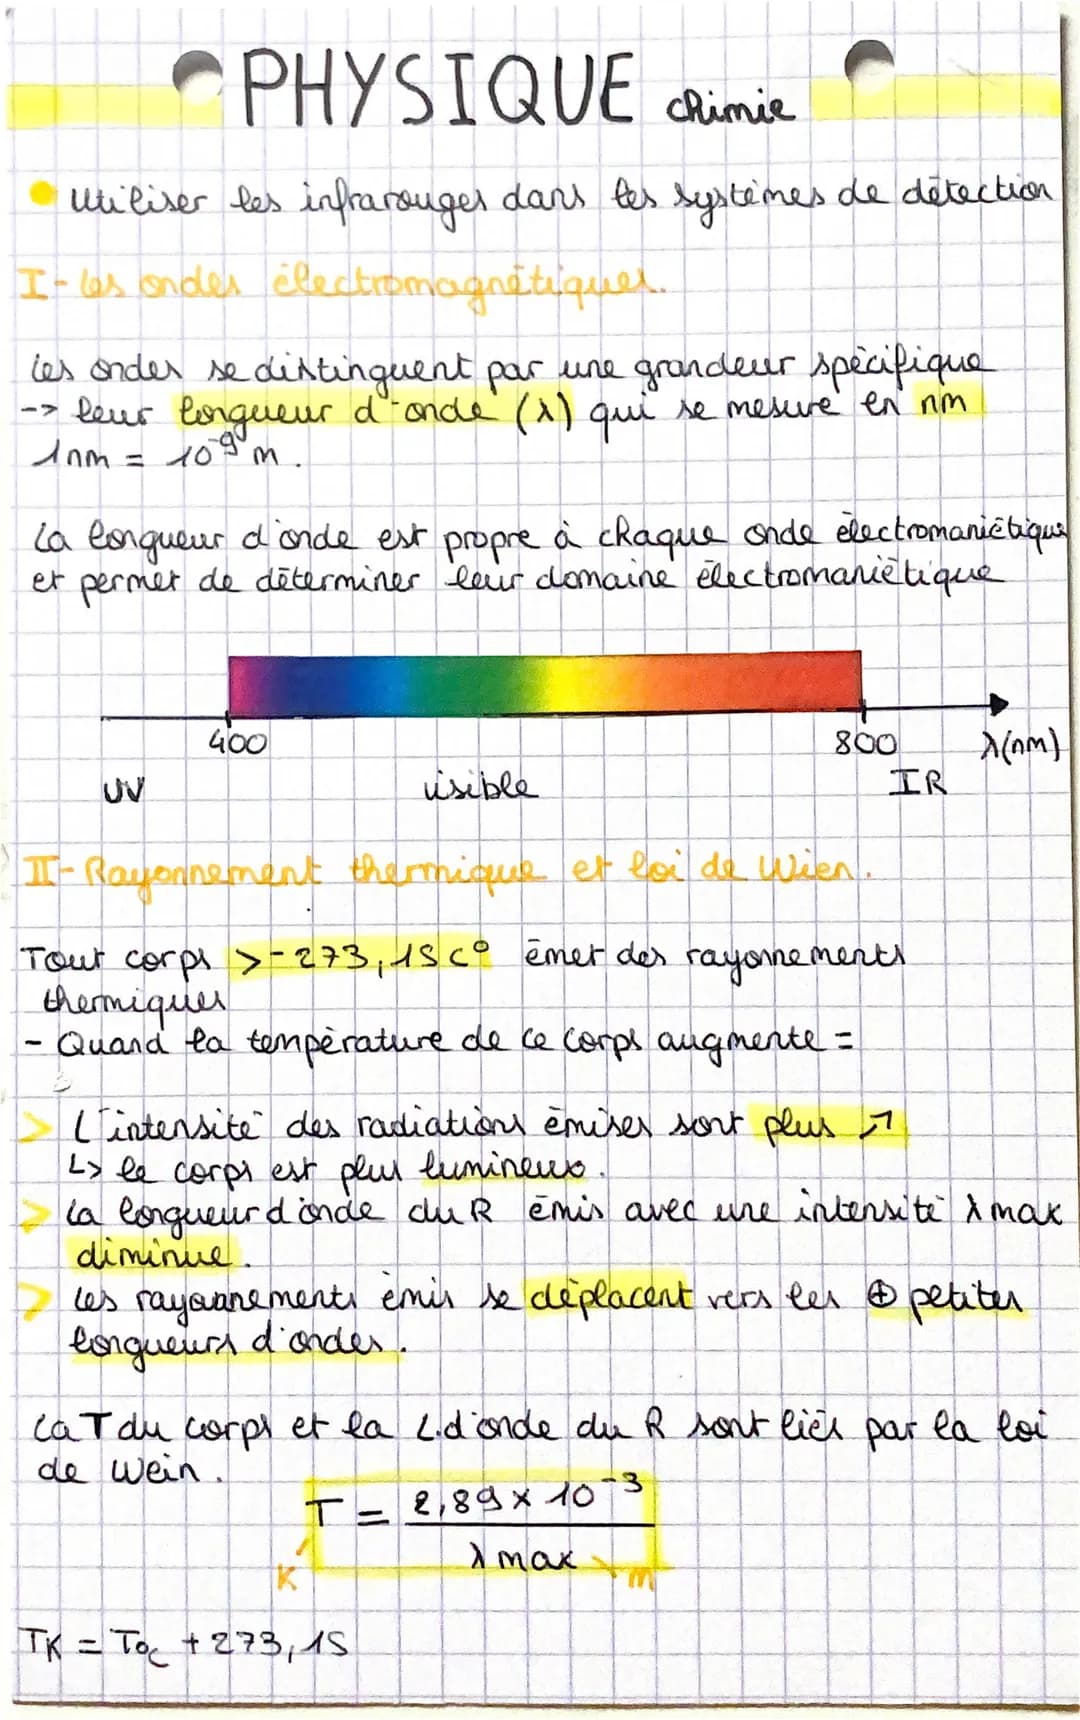 PHYSIQUE chimie
Utiliser les infrarouges dans les systèmes de détection
I - Les ondes électromagnétiques.
Les ondes se distinguent par une grandeur spécifique
-> leur longueur d'onde (λ) qui se mesure en nm
1nm = 10⁻⁹ m.
La longueur d'onde est propre à chaque onde électromaniétique
et permet de déterminer leur domaine électromaniétique
400 800 λ(nm)
UV visible IR
II - Rayonnement thermique et loi de Wien.
Tout corps >-273,15C° émet des rayonnements
thermiques
- Quand la température de ce corps augmente =
> L'intensité des radiations émises sont plus ↗
↳ le corps est plus lumineux.
> La longueur d'onde du R émis avec une intensité λ max
diminue.
> Les rayonnements émis se déplacent vers les ⊕ petites
longueurs d'ondes.
La T du corps et la L.d'onde du R sont liés par la loi
de Wein.
T = 2,89 × 10⁻³
λ max
K m
TK = T°C + 273,15